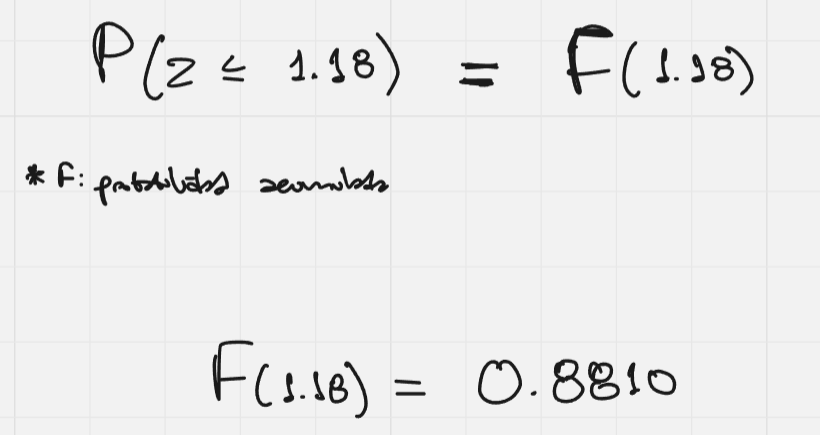 P(z ≤ 1.18) = F(1.18)
* F: probabilidad acumulada
F(1.18) = 0.8810